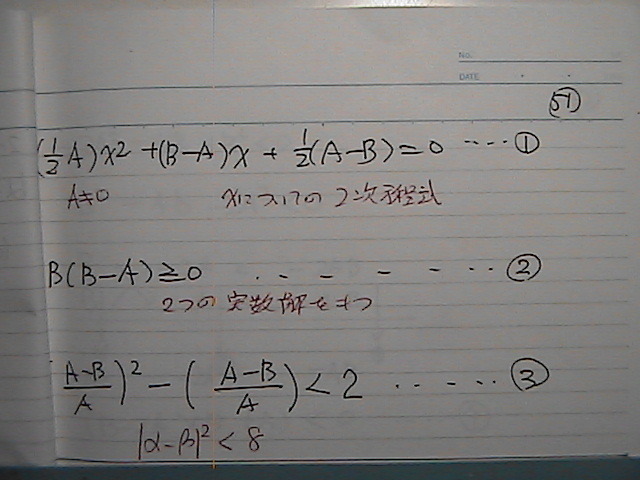 No.
DATE
51
(1/2 A)x² + (B-A)x + 1/2(A-B) = 0 ‥‥ ①
A≠0 xについての2次方程式
B(B-A) ≧ 0 ・ - - - - ‥ ②
2つの実数解をもつ
(A-B)/A)² - ((A-B)/A) < 2 ‥‥‥ ③
|α-β|² < 8